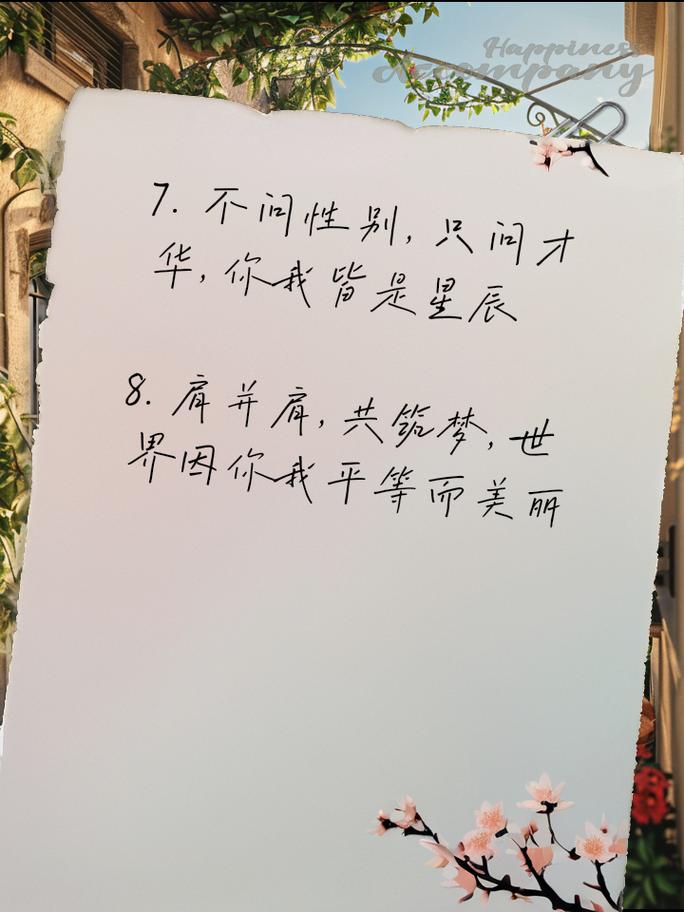 Happiness
Accompany
7. 不问性别，只问才
华，你我皆是星辰
8. 肩并肩，共筑梦，世
界因你我平等而美丽